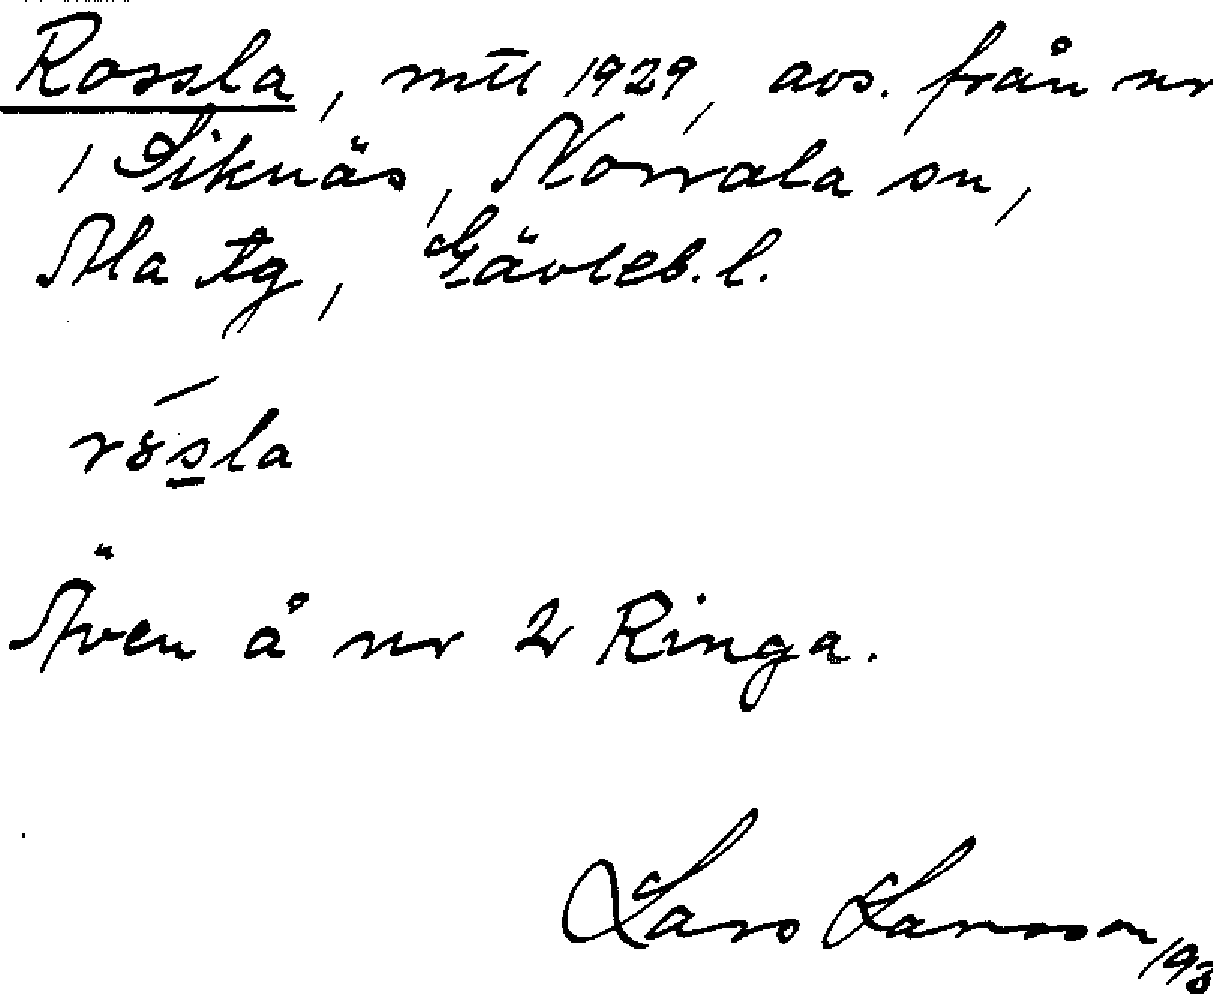 Rossla, mtl 1929, avs. från nr
1 Siknäs, Norrala sn,
Ala tg, Gävleb. l.
rósla
Även å nr 2 Ringa.
Lars Larsson 193